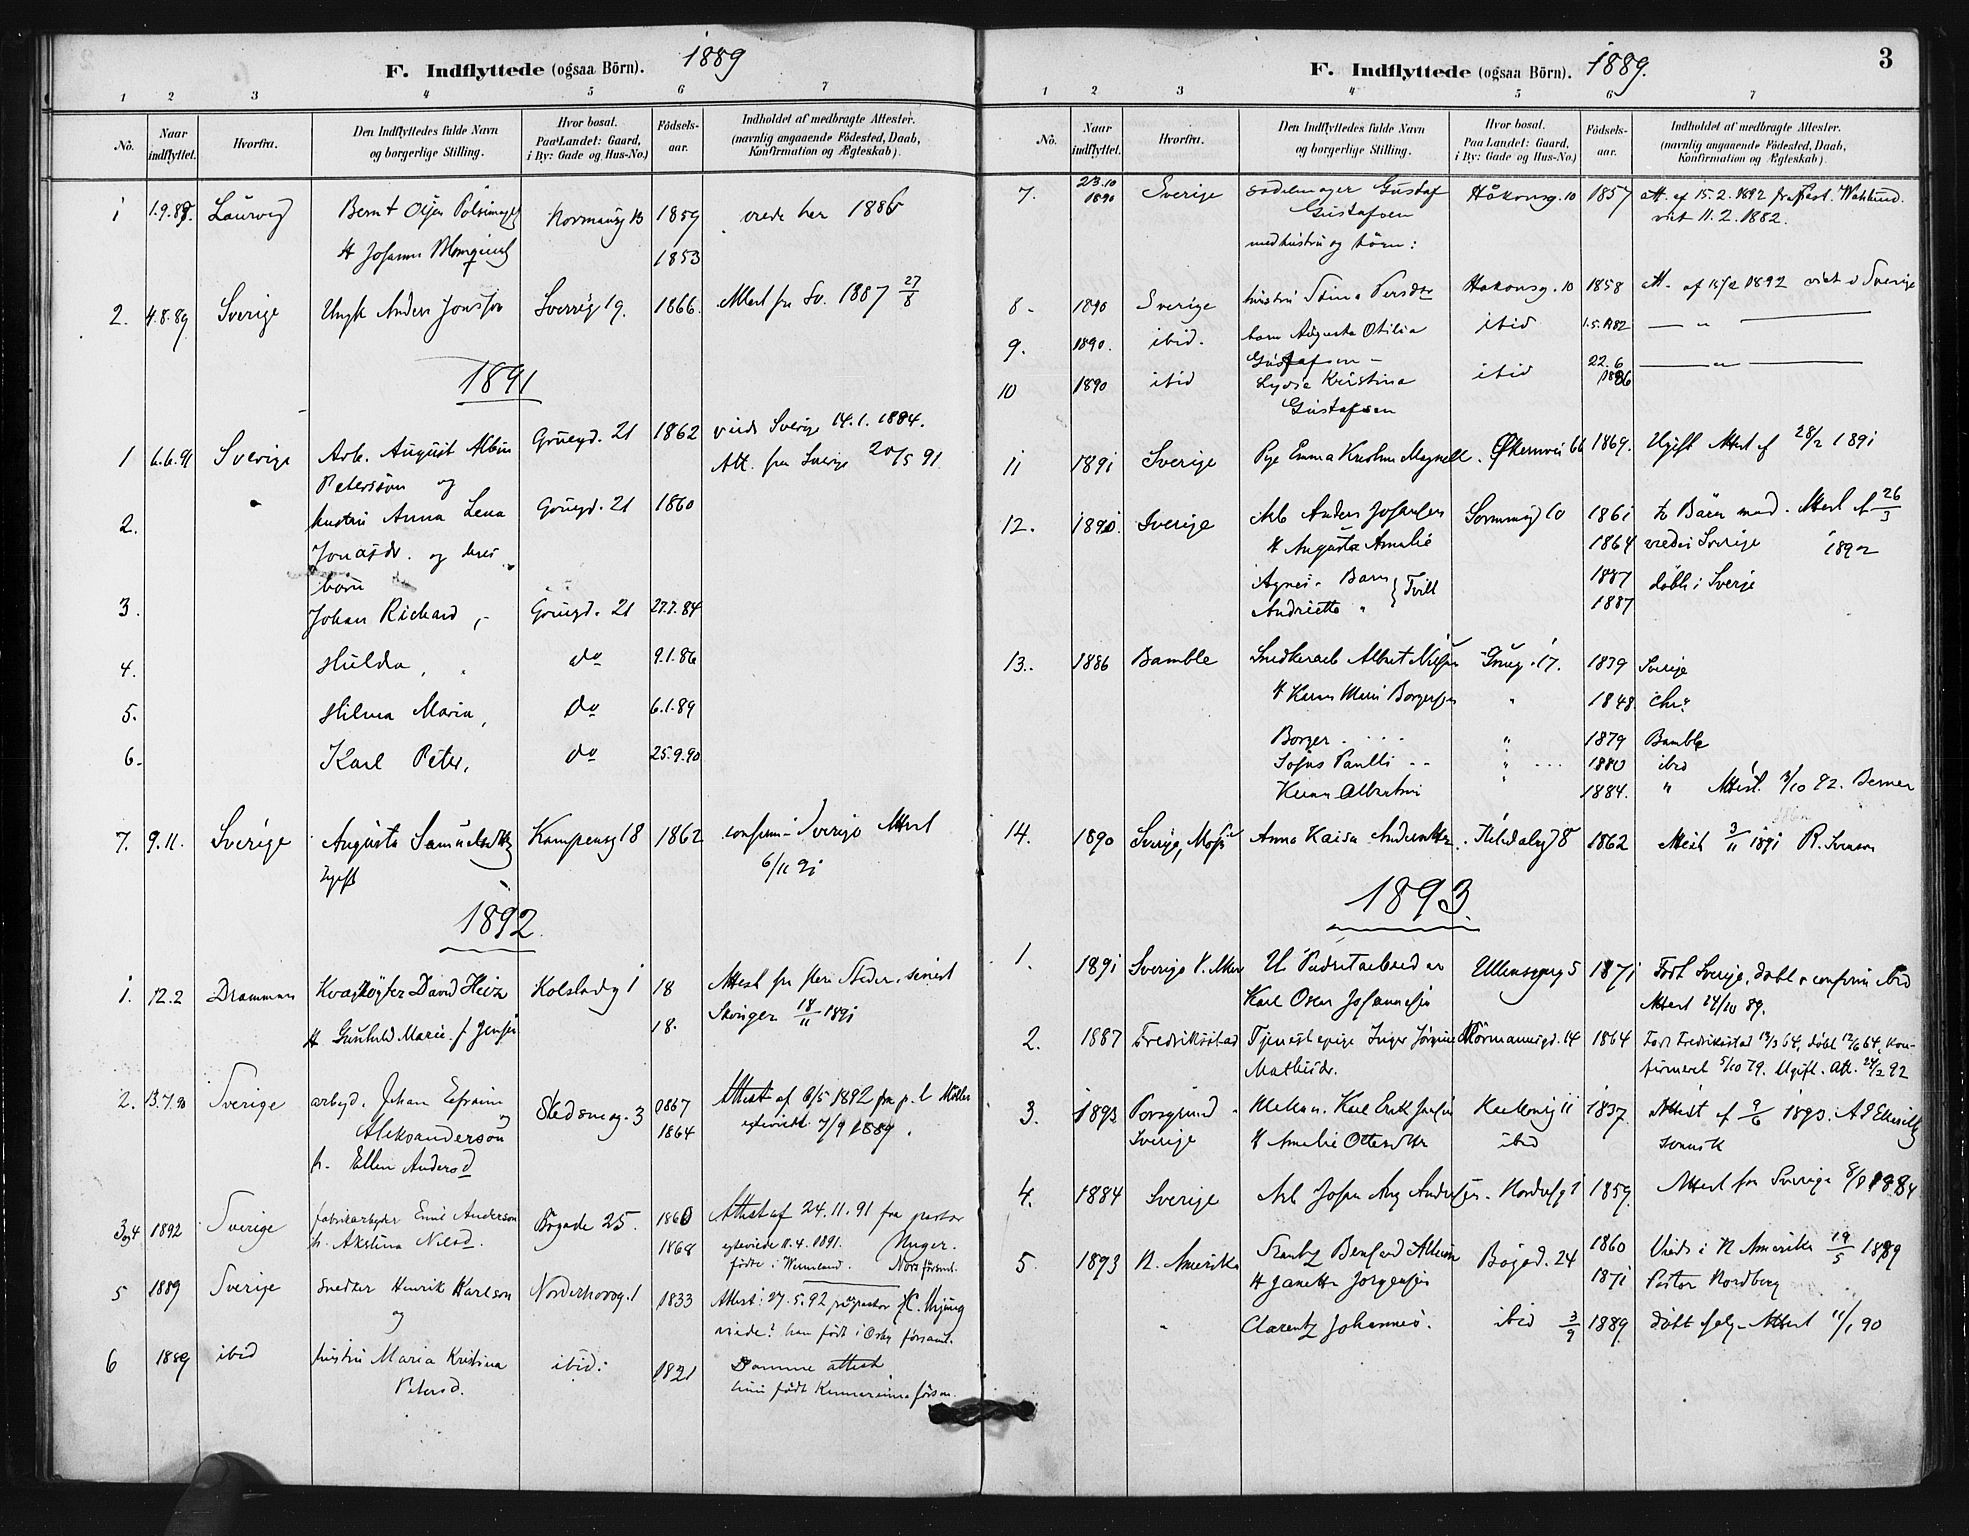 F. Indflyttede (ogsaa Börn). 1889
1 2 3 4 5 6 7
No. Naar indflyttet. Hvorfra. Den Indflyttedes fulde Navn og borgerlige Stilling. Hvor bosat. Paa Landet: Gaard, i By: Gade og Hus-No.) Födsels-aar. Indholdet af medbragte Attester. (navnlig angaaende Födested, Daab, Konfirmation og Ægteskab).
1 1.9.88. Laurvig Bernt Normansg 13 1859 viede her 1886
H Johanne 1853
2. 4.8.89 Sverige Ungk Anders Jonsson Sverresg 19. 1866. Attest fra Sv. 1887 27/8
1891
1 6.6.91 Sverige Arb. August Albin Gruegd. 21 1862 viede Sverige 14.1.1884.
Petersson og Att. fra Sverige 20/5 91.
2. hustru Anna Lena Gruegd. 21 1860
Jonasdr. og deres
börn
3. Johan Richard, Gruegd. 21 27.7.84
4. Hulda, do 9.1.86
5. Hilma Maria, do 6.1.89
6. Karl Peter, do 25.9.90
7. 9.11. Sverige Augusta Samuelsdtr Kampensg 18 1862 confirm i Sverige Attest
Ugift 6/11 91
1892
1. 12.2 Drammen David Heiz Kolstadg 1 18 Attest fra flere Steder, senest
H Gunhild Marie f. Jensen 18. Skoger 18/11 1891
2. 13.7.90 Sverige arbejd. Johan Efraim Stedsneg. 3 1867 Attest af 6/5 1892 fra p. C Möller
og 1864 egteviet 7/9 1889.
Aleksanderson
h. Ellen Andersd
3 og 4 1892 Sverige fabrikarbejder Emil Anderson Bögade 25. 1860 Attest af 24.11.91 fra pastor
h. Akstina Nilsd. 1868 egteviede 11.4.1891. Unger.
födte i Wermland. Nors församl.
5 1889 Sverige snedker Henrik Karlson Norderhovsg. 1 1833 Attest: 27.5.92 fra pastor
og viede? han födt i Osby församl.
6 1889 ibid hustru Maria Kristina ibid: 1821 Samme attest
Petersd. hun födt försm.
F. Indflyttede (ogsaa Börn). 1889. 3
1 2 3 4 5 6 7
No. Naar indflyttet. Hvorfra. Den Indflyttedes fulde Navn og borgerlige Stilling. Hvor bosat. Paa Landet: Gaard, i By: Gade og Hus-No.) Födsels-aar. Indholdet af medbragte Attester. (navnlig angaaende Födested, Daab, Konfirmation og Ægteskab)
7. 23.10 1890 Sverige sadelmager Gustaf Håkonsg. 10 1857 att. af 15.2.1892 fra Past. Wahlund.
Gustafsen viet 11.2.1882.
med hustru og börn:
8. 1890 Sverige hustru Stina Persdtr Hakonsg. 10 1858 Att. af 15/2 1892 viet i Sverige
9. 1890. ibid. barn Augusta Otilia ibid 1.5.1882 — " —
Gustafsen —
10 1890 ibid Lydia Kristina ibid 22.6 1886 — " —
Gustafsen
11 1891 Sverige Pge Emma Kristine Magnell. Økernvei 66 1869. Ugift Attest af 28/2 1891
12. 1890. Sverige Arb Anders Johansen 10 1861 to Bärn med. Attest af 26/3
H Augusta Amalie 1864 viede i Sverige 1892
Agnes. Barn } Tvill 1887 döbt i Sverje
Andriette " 1887
13. 1886 Bamble Snedkerarb Albert Nilsen Grueg. 17. 1839 Sverige
H Karen Marie Borgersen " 1848. Chra
Borger " 1879 Bamble
Sofus Paulli " 1880 ibid
Albertine 1884. " Attest. 3/10 92. Berner
14. 1890 Sverige, Anna Kaisa Andersdtr. 8 1862 Attest 3/11 1891 R.
1893
1. 1891 Sverige U. Ullensgveg 5 1871 Född Sverige, döbt & confirm ibid
Karl Oscar Johannesen Attest 24/10 89.
2. 1887 Fredrikstad Tjenestepige Inger Jörgine Normannsgd. 14 1864 Född Fredrikstad 13/3 64, döbt 12/6 64, kon-
Mathisdr. firmeret 5/10 79. Ugift. Att. 24/2 92
3. 1893 Porsgrund Karl Erik 11 1837. Attest af 9/6 1893.
Sverige H Amalie Ottersdtr ibid svensk
4. 1884 Sverige Arb Johan Aug Andersen. 1 1859. Attest fra Sverige 1884
5. 1893 N. Amerika Bögad. 24 1860 Viede i N Amerika 19/5 1889
H Janette Jorgensen 1871 Pastor Nordberg
" Clarentz Johannes. ibid 3/9 1889 döbt Attest 11/1 90